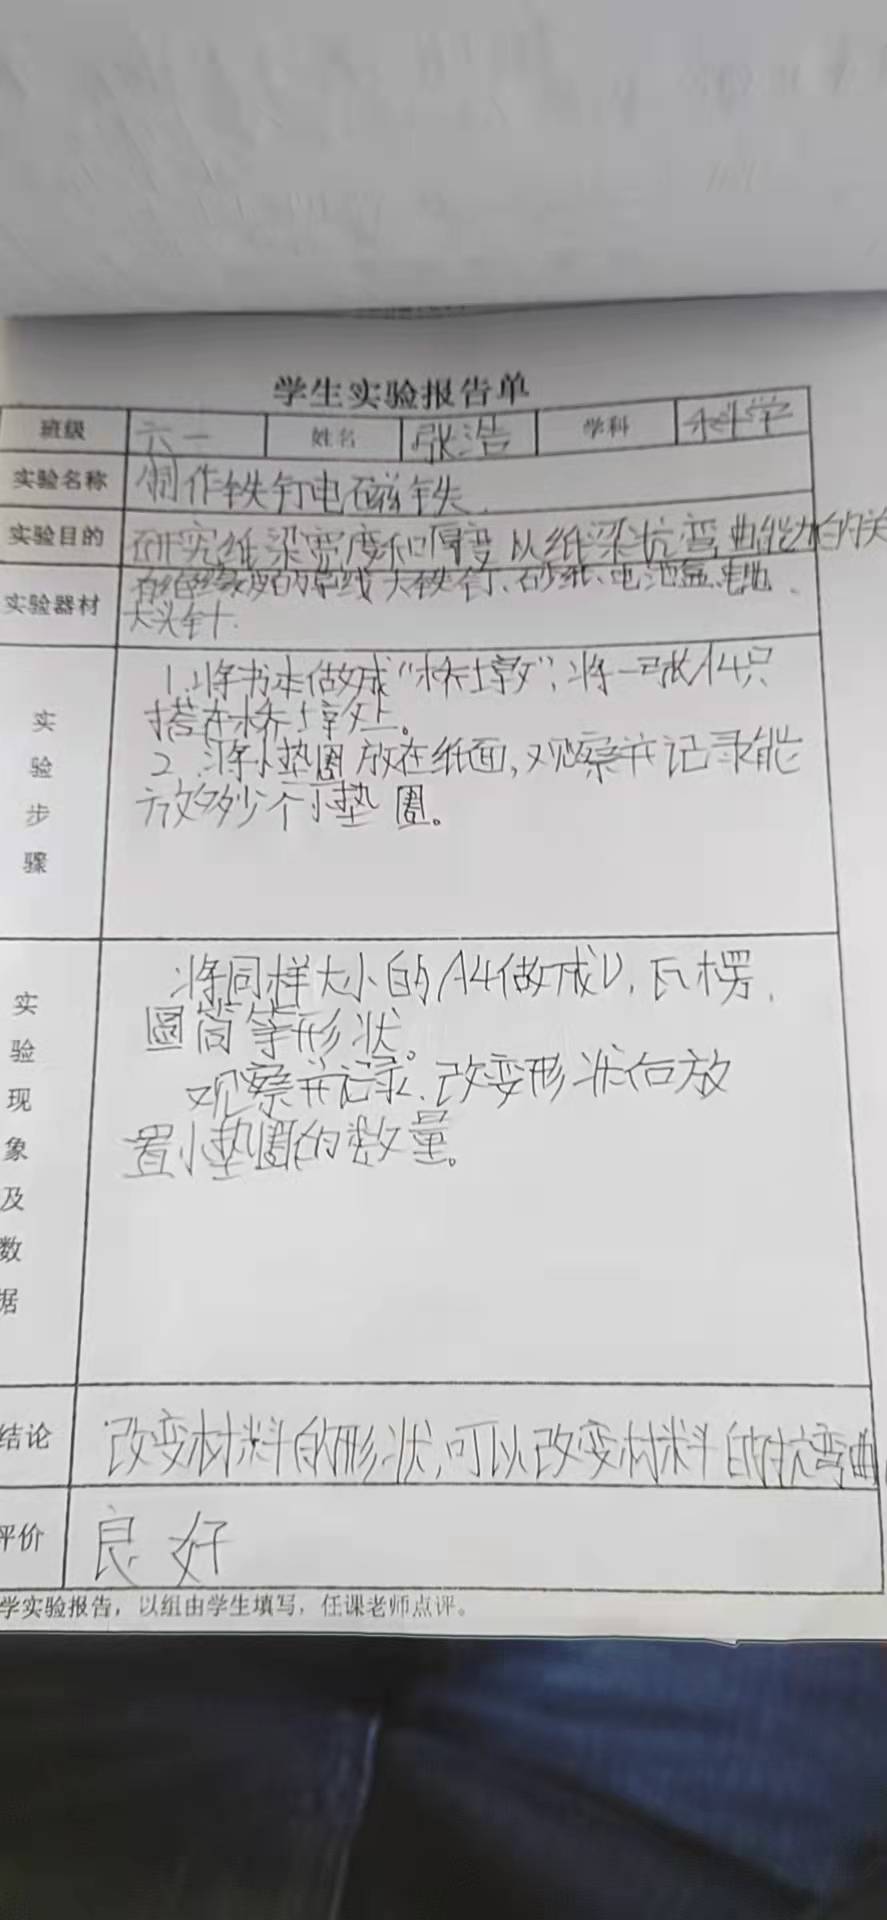 学生实验报告单
班级 六一 姓名 张浩 学科 科学
实验名称 制作铁钉电磁铁
实验目的 研究纸梁宽度和厚度以纸梁抗弯曲能力的关
实验器材 有绝缘皮的导线、大铁钉、砂纸、电池盒、电池、
大头针.
实验步骤 1.将书本做成“桥墩”,将一张A4只
搭在桥墩处。
2.将小垫圈放在纸面,观察并记录能
放多少个小垫圈。
实验现象及数据 将同样大小的A4做成U,瓦楞,
圆筒等形状。
观察并记录.改变形状后放
置小垫圈的数量。
结论 改变材料的形状,可以改变材料的抗弯曲
评价 良好
学实验报告,以组由学生填写,任课老师点评。